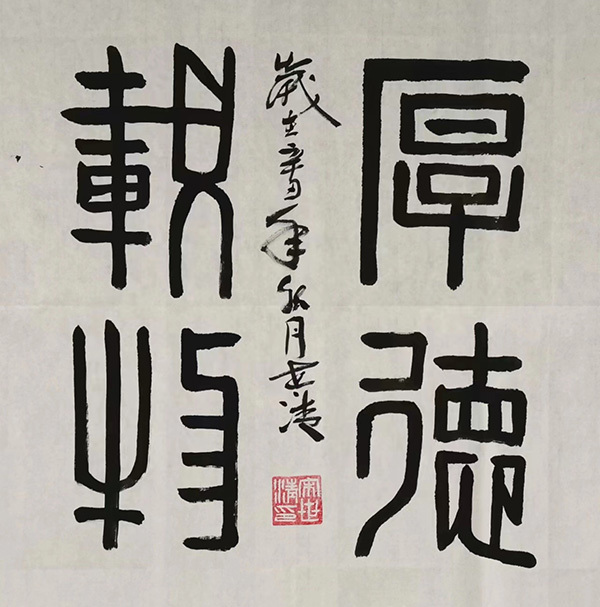 厚德
載物
歲在辛丑年秋月世清